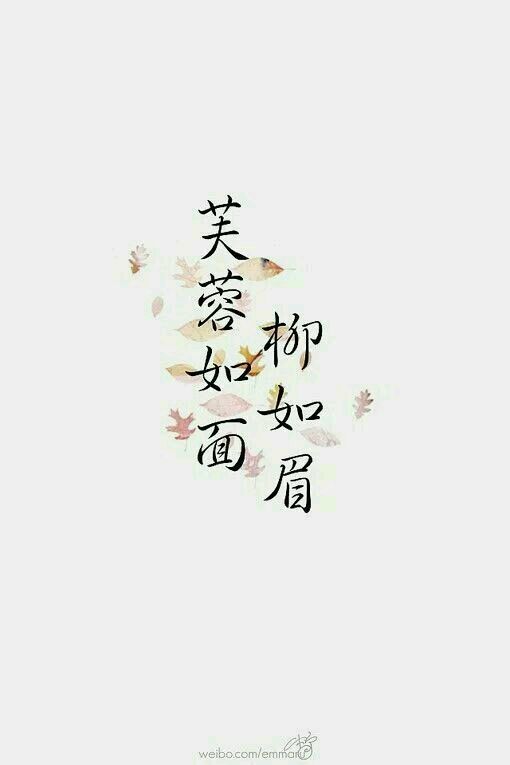 芙蓉如面
柳如眉
weibo.com/emmaru